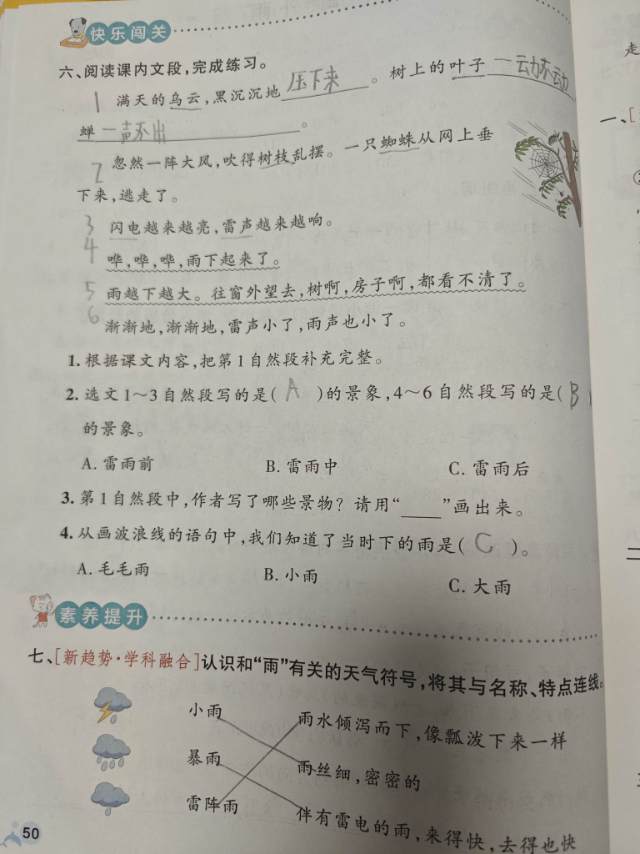 快乐闯关
六、阅读课内文段,完成练习。
1 满天的乌云,黑沉沉地压下来。树上的叶子一动不动
蝉一声不出。
2 忽然一阵大风,吹得树枝乱摆。一只蜘蛛从网上垂
下来,逃走了。
3 闪电越来越亮,雷声越来越响。
4 哗,哗,哗,雨下起来了。
5 雨越下越大。往窗外望去,树啊,房子啊,都看不清了。
6 渐渐地,渐渐地,雷声小了,雨声也小了。
1. 根据课文内容,把第1自然段补充完整。
2. 选文1~3自然段写的是( A )的景象,4~6自然段写的是( B
的景象。
A. 雷雨前 B. 雷雨中 C. 雷雨后
3. 第1自然段中,作者写了哪些景物?请用“____”画出来。
4. 从画波浪线的语句中,我们知道了当时下的雨是( C )。
A. 毛毛雨 B. 小雨 C. 大雨
素养提升
七、[新趋势·学科融合]认识和“雨”有关的天气符号,将其与名称、特点连线。
小雨 雨水倾泻而下,像瓢泼下来一样
暴雨 雨丝细,密密的
雷阵雨 伴有雷电的雨,来得快,去得也快
50
走
一、[